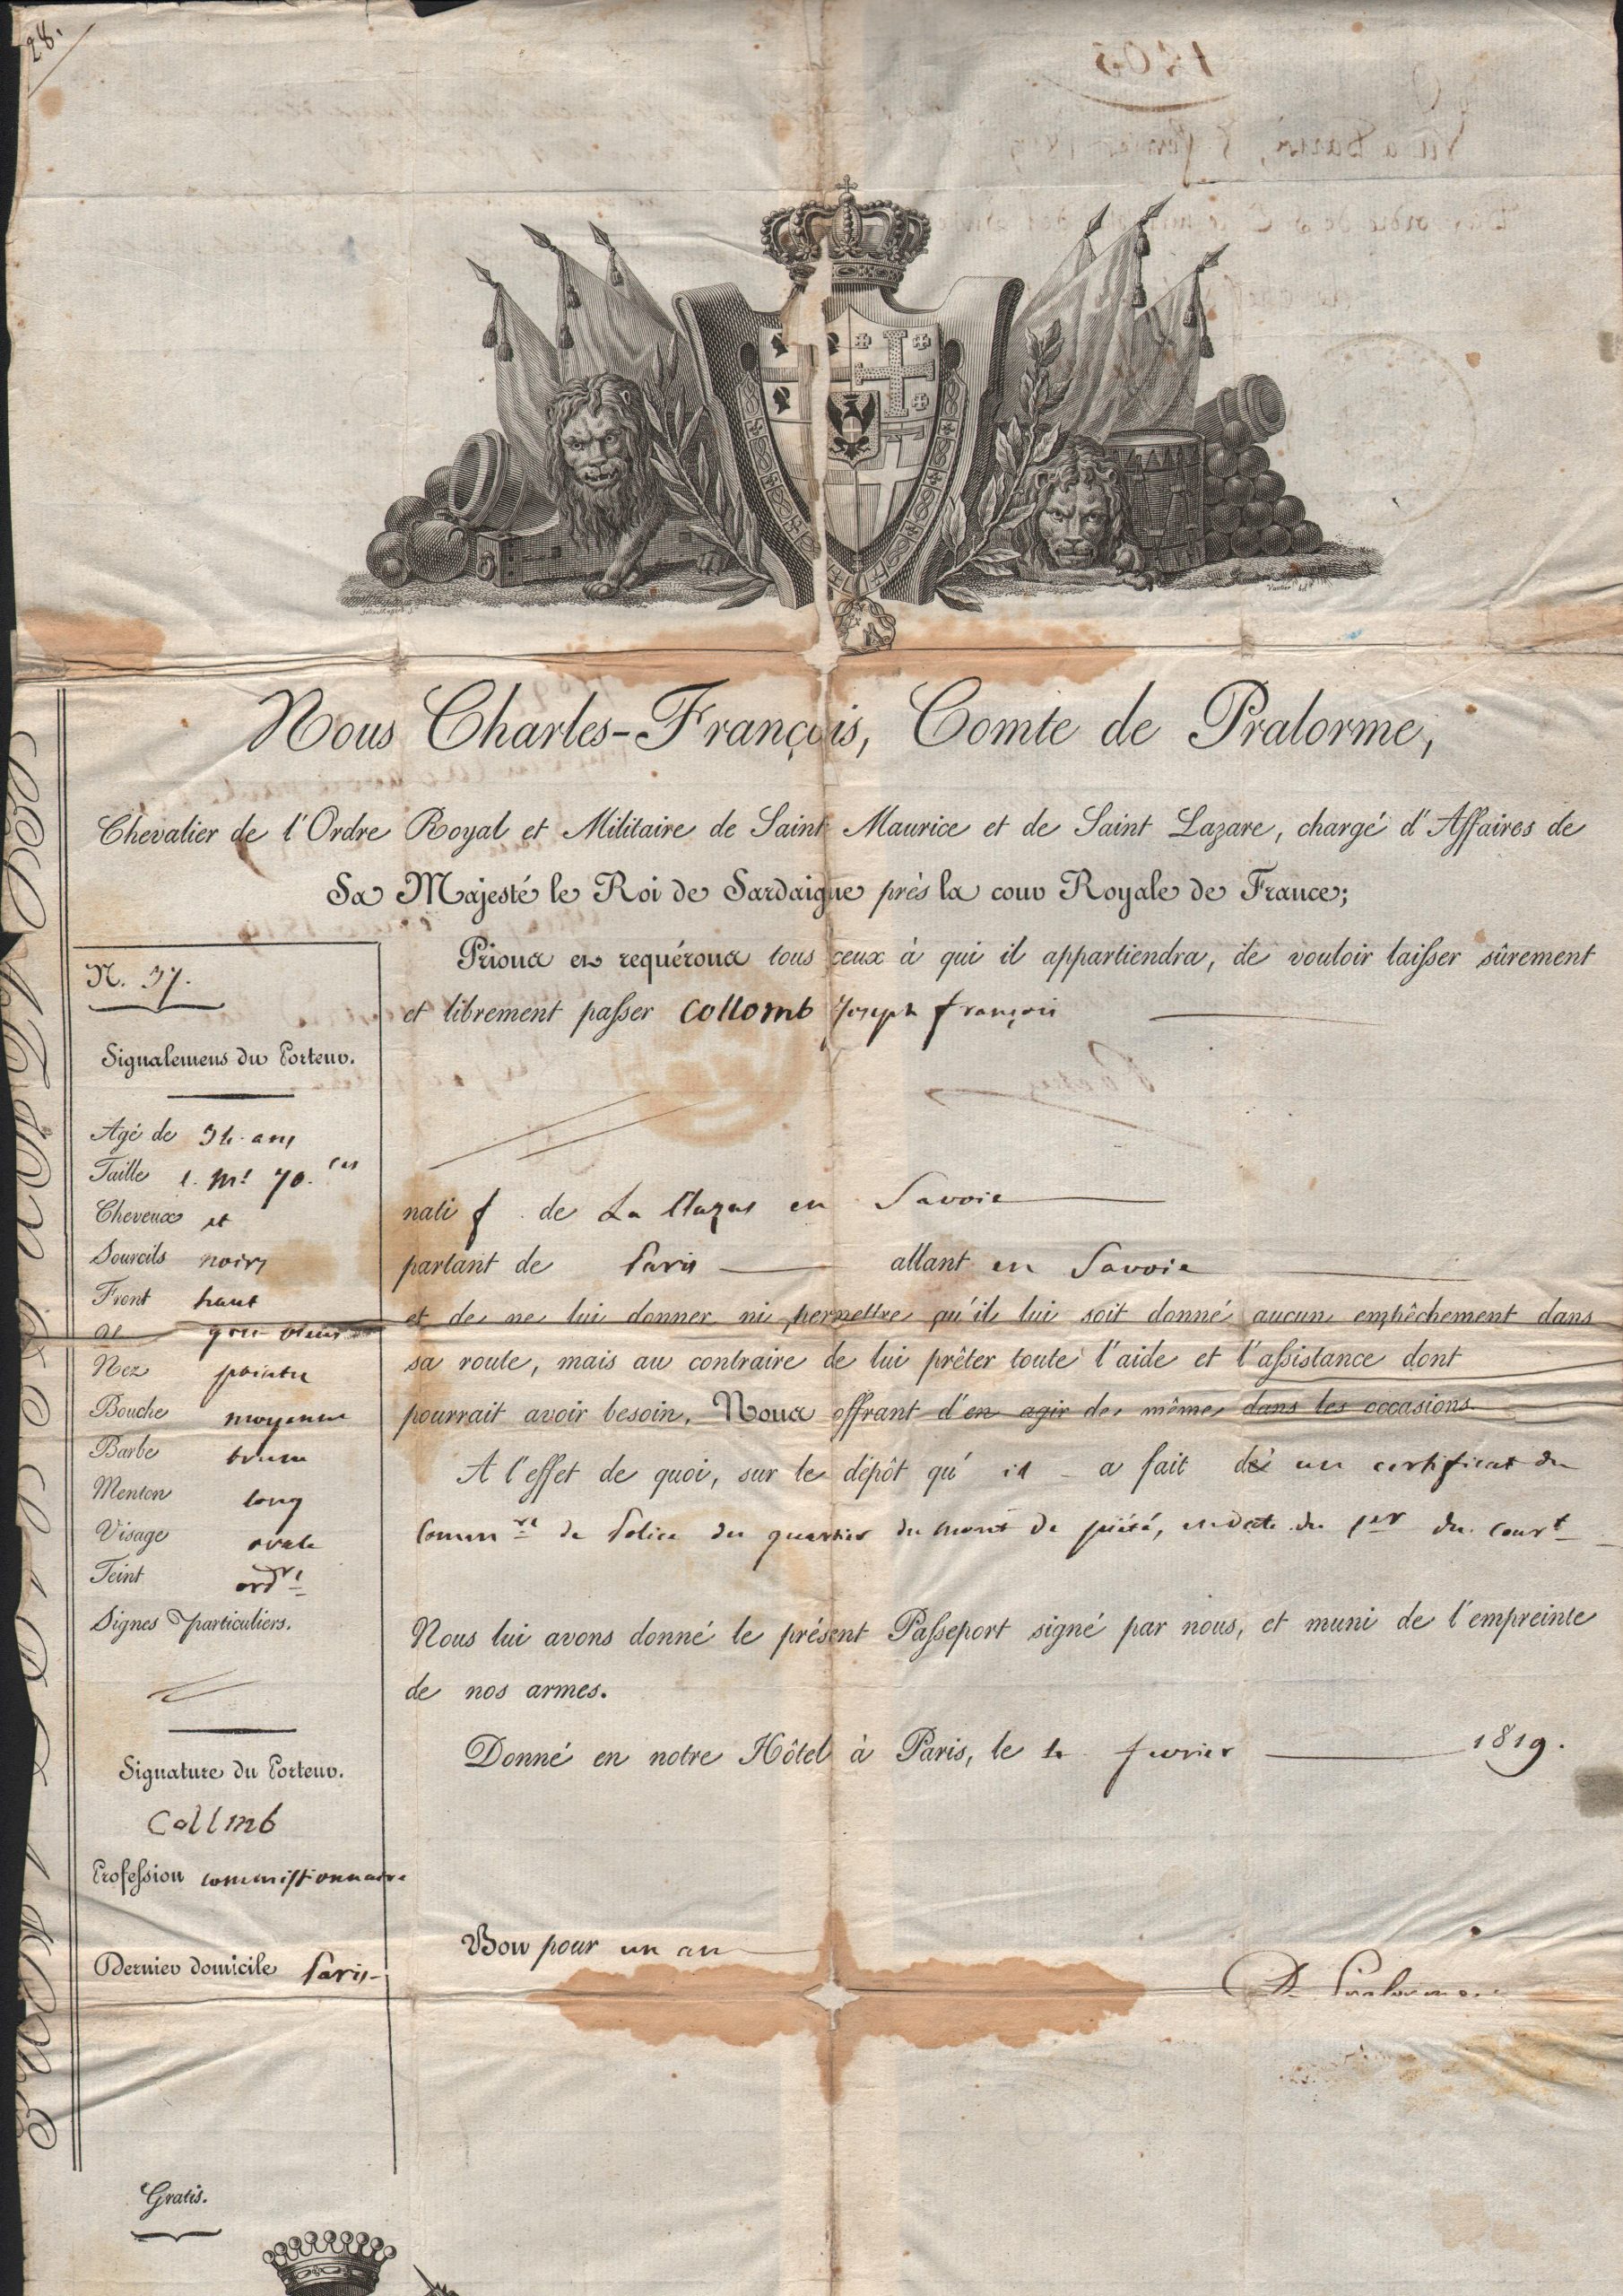 28.
Nous Charles-François, Comte de Pralorme,
Chevalier de l'Ordre Royal et Militaire de Saint Maurice et de Saint Lazare, chargé d'Affaires de
Sa Majesté le Roi de Sardaigne près la cour Royale de France;
Prions et requérons tous ceux à qui il appartiendra, de vouloir laisser sûrement
et librement passer Collomb Joseph françois
natif de La Cluzas en Savoie
partant de Paris allant en Savoie
et de ne lui donner ni permettre qu'il lui soit donné aucun empêchement dans
sa route, mais au contraire de lui prêter toute l'aide et l'assistance dont
pourrait avoir besoin, Nous offrant d'en agir de même dans les occasions.
A l'effet de quoi, sur le dépôt qu'il a fait de un certificat du
Commre de Police du quartier du mont de piété, en date du 1er du court
Nous lui avons donné le présent Passeport signé par nous, et muni de l'empreinte
de nos armes.
Donné en notre Hôtel à Paris, le 4 fevrier 1819.
Bon pour un an
De Pralorme
N. 37.
Signalemens du Porteur.
Agé de 34 ans
Taille 1. Mt 70. ces
Cheveux et
Sourcils noirs
Front haut
gris bleus
Nez pointu
Bouche moyenne
Barbe brune
Menton long
Visage ovale
Teint ordre
Signes particuliers.
Signature du Porteur.
Collmb
Profession commissionnaire
Dernier domicile Paris
Gratis.